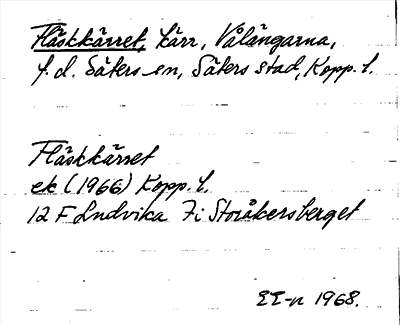 Fläskkärret, kärr, Vålängarna,
f.d. Säters sn, Säters stad, Kopp. l.
Fläskkärret
ek (1966) Kopp. l.
12 F Ludvika 7i Storåkersberget
EE-n 1968.